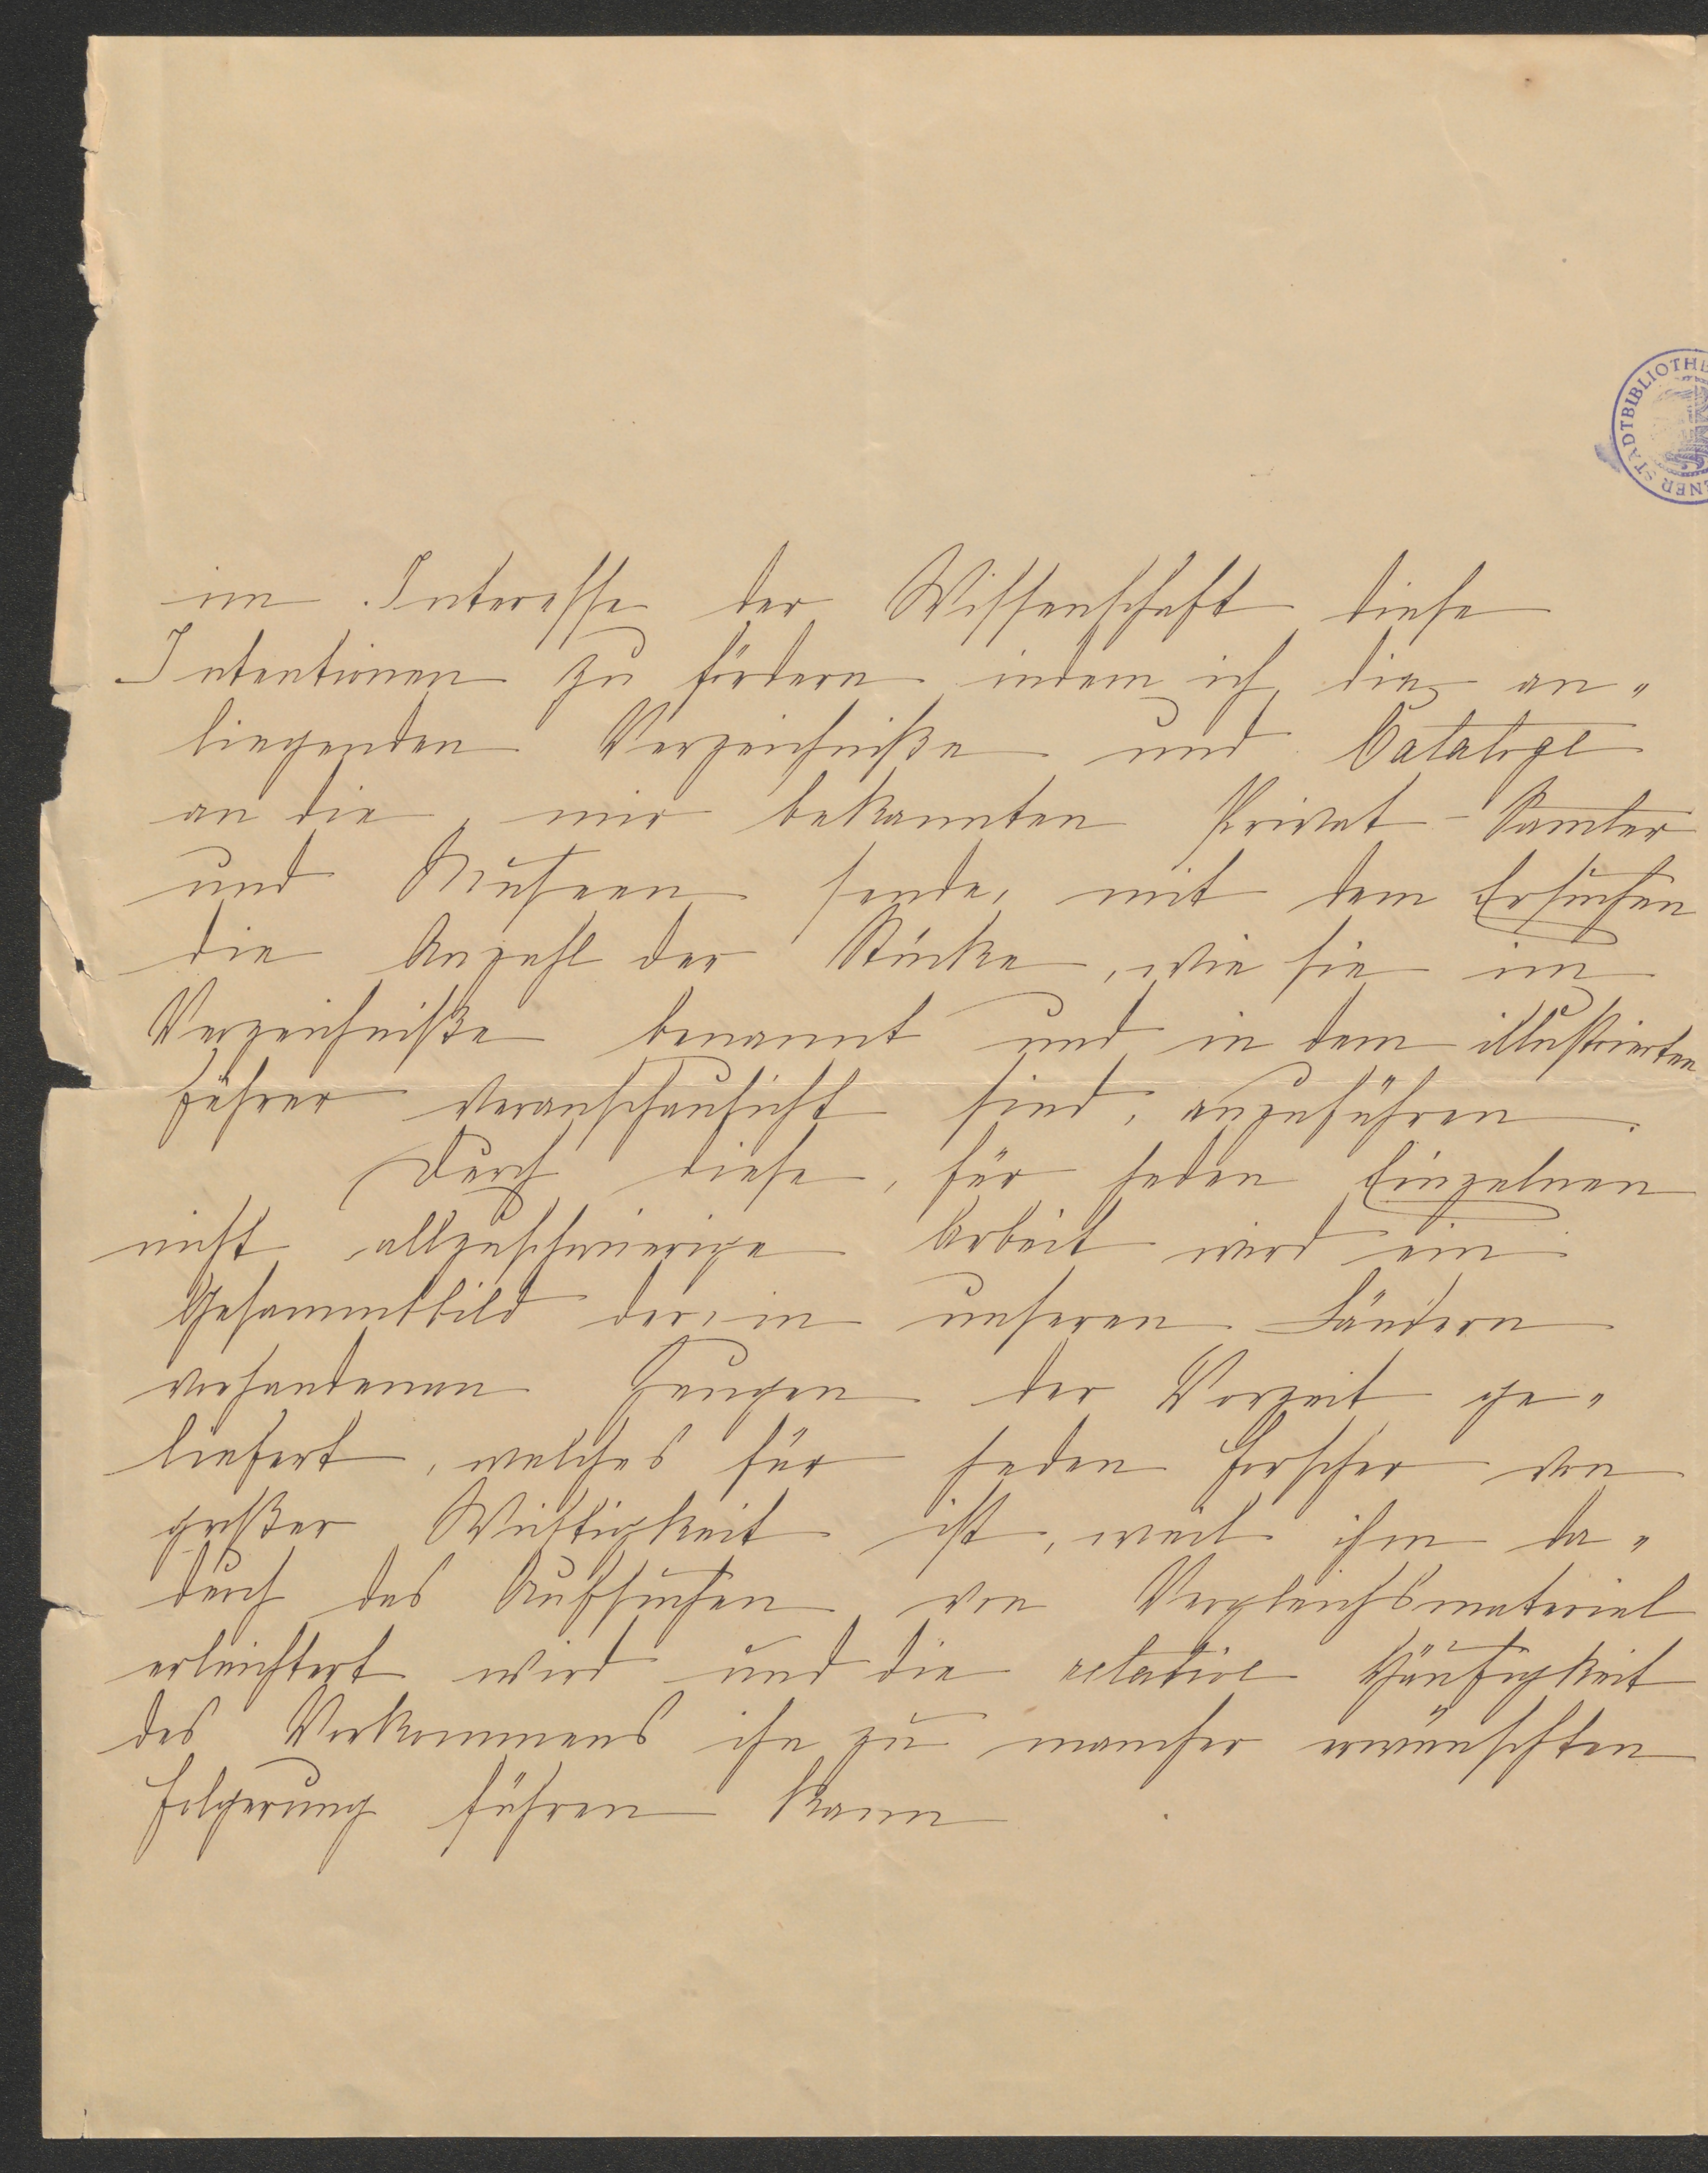 STADTBIBLIOTHE
ENER
im Interesse der Wissenschaft diese
Intentionen zu fördern indem ich die an„
liegenden Verzeichniße und Cataloge
an die mir bekannten Privat-Samler
und Museen sende, mit dem Ersuchen
die Anzahl der Stücke, wie sie im
Verzeichniße benannt und in dem illustrierten
Führer veranschaulicht sind, anzuführen.
Durch diese, für jeden Einzelnen
nicht allzuschwierige Arbeit wird ein
Gesammtbild der, in unseren Ländern
vorhandenen Zeugen der Vorzeit ge„
liefert, welches für jeden Forscher von
großer Wichtigkeit ist, weil ihm da„
durch das Aufsuchen von Vergleichsmaterial
erleichtert wird und die relative Häufigkeit
des Vorkommens ihn zu mancher erwünschten
Folgerung führen kann.